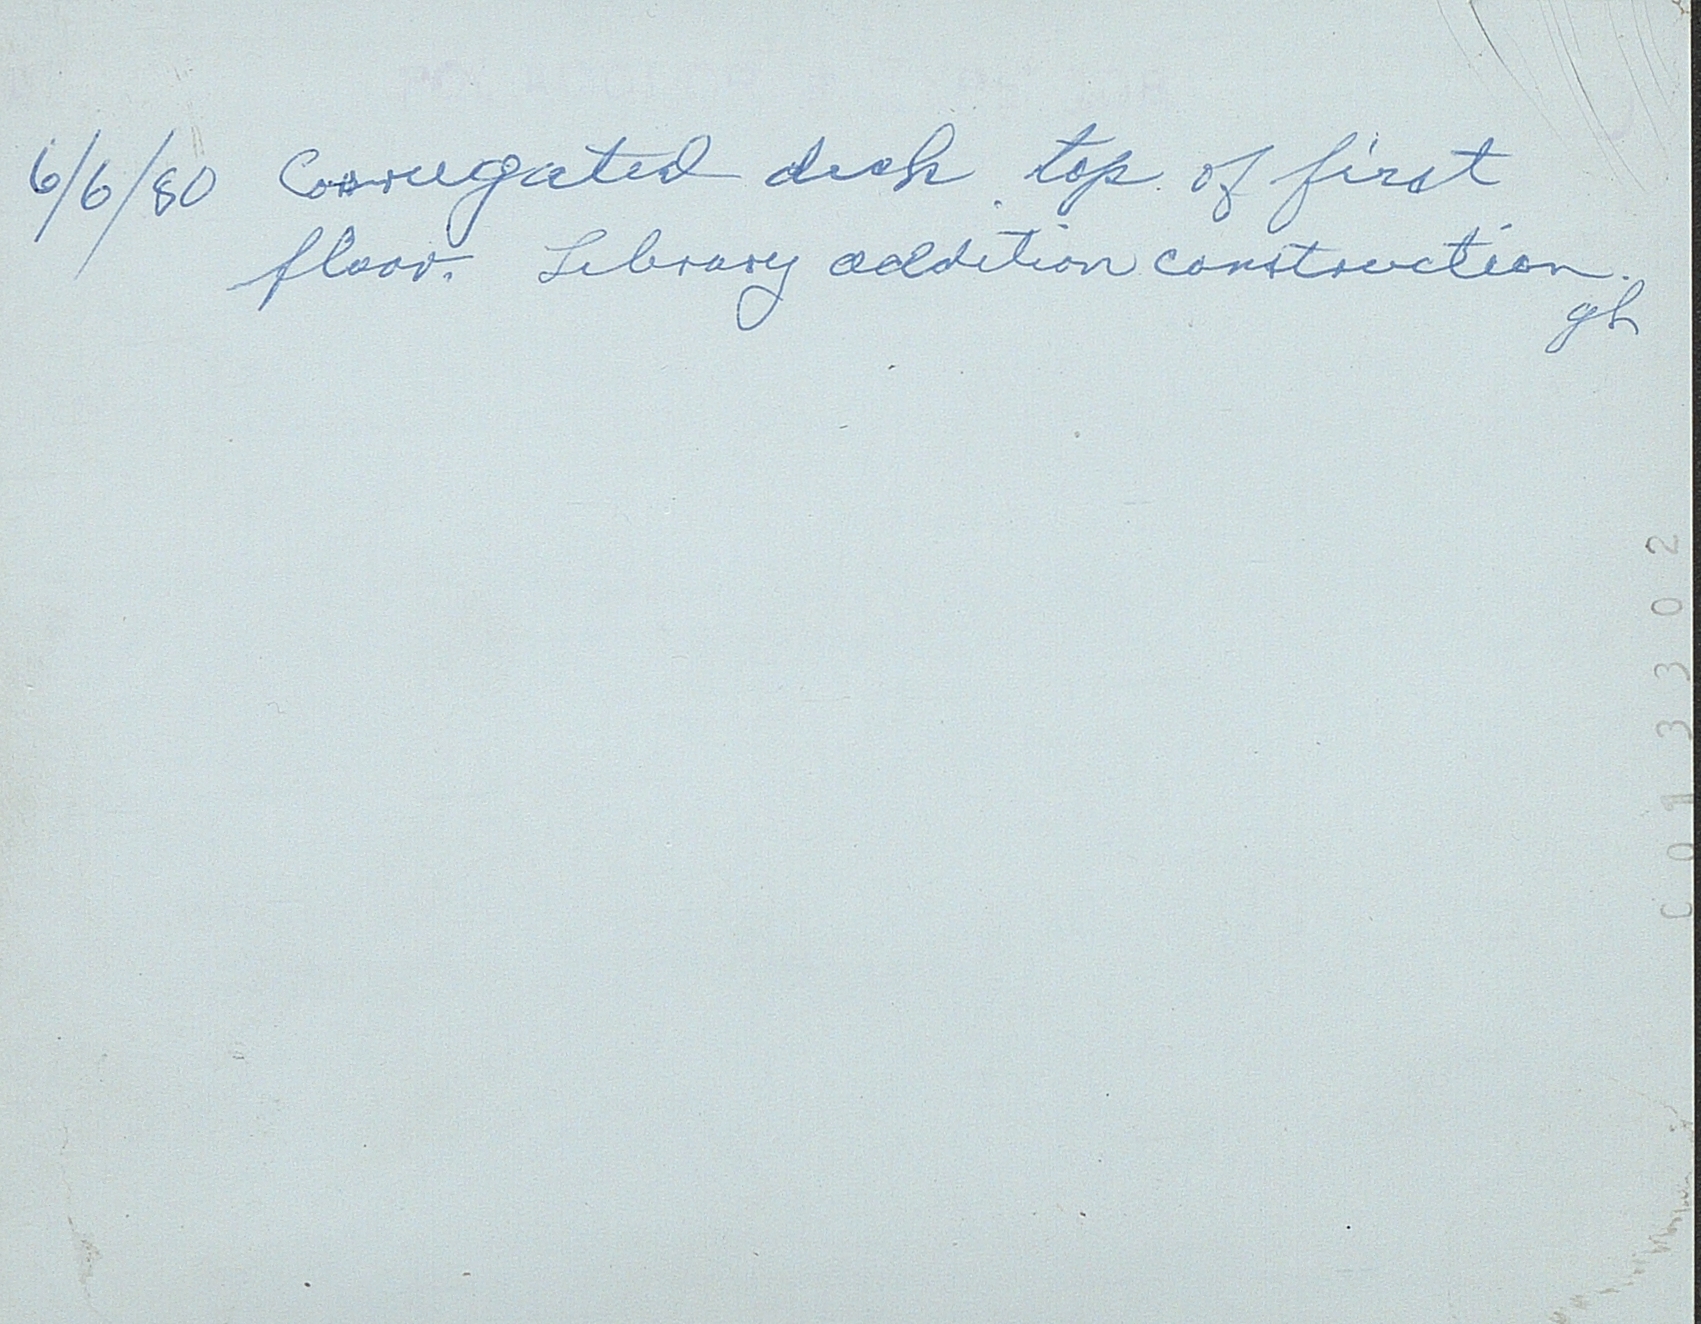 6/6/80 Corrugated deck top of first
floor. Library addition construction.
gh
C013302